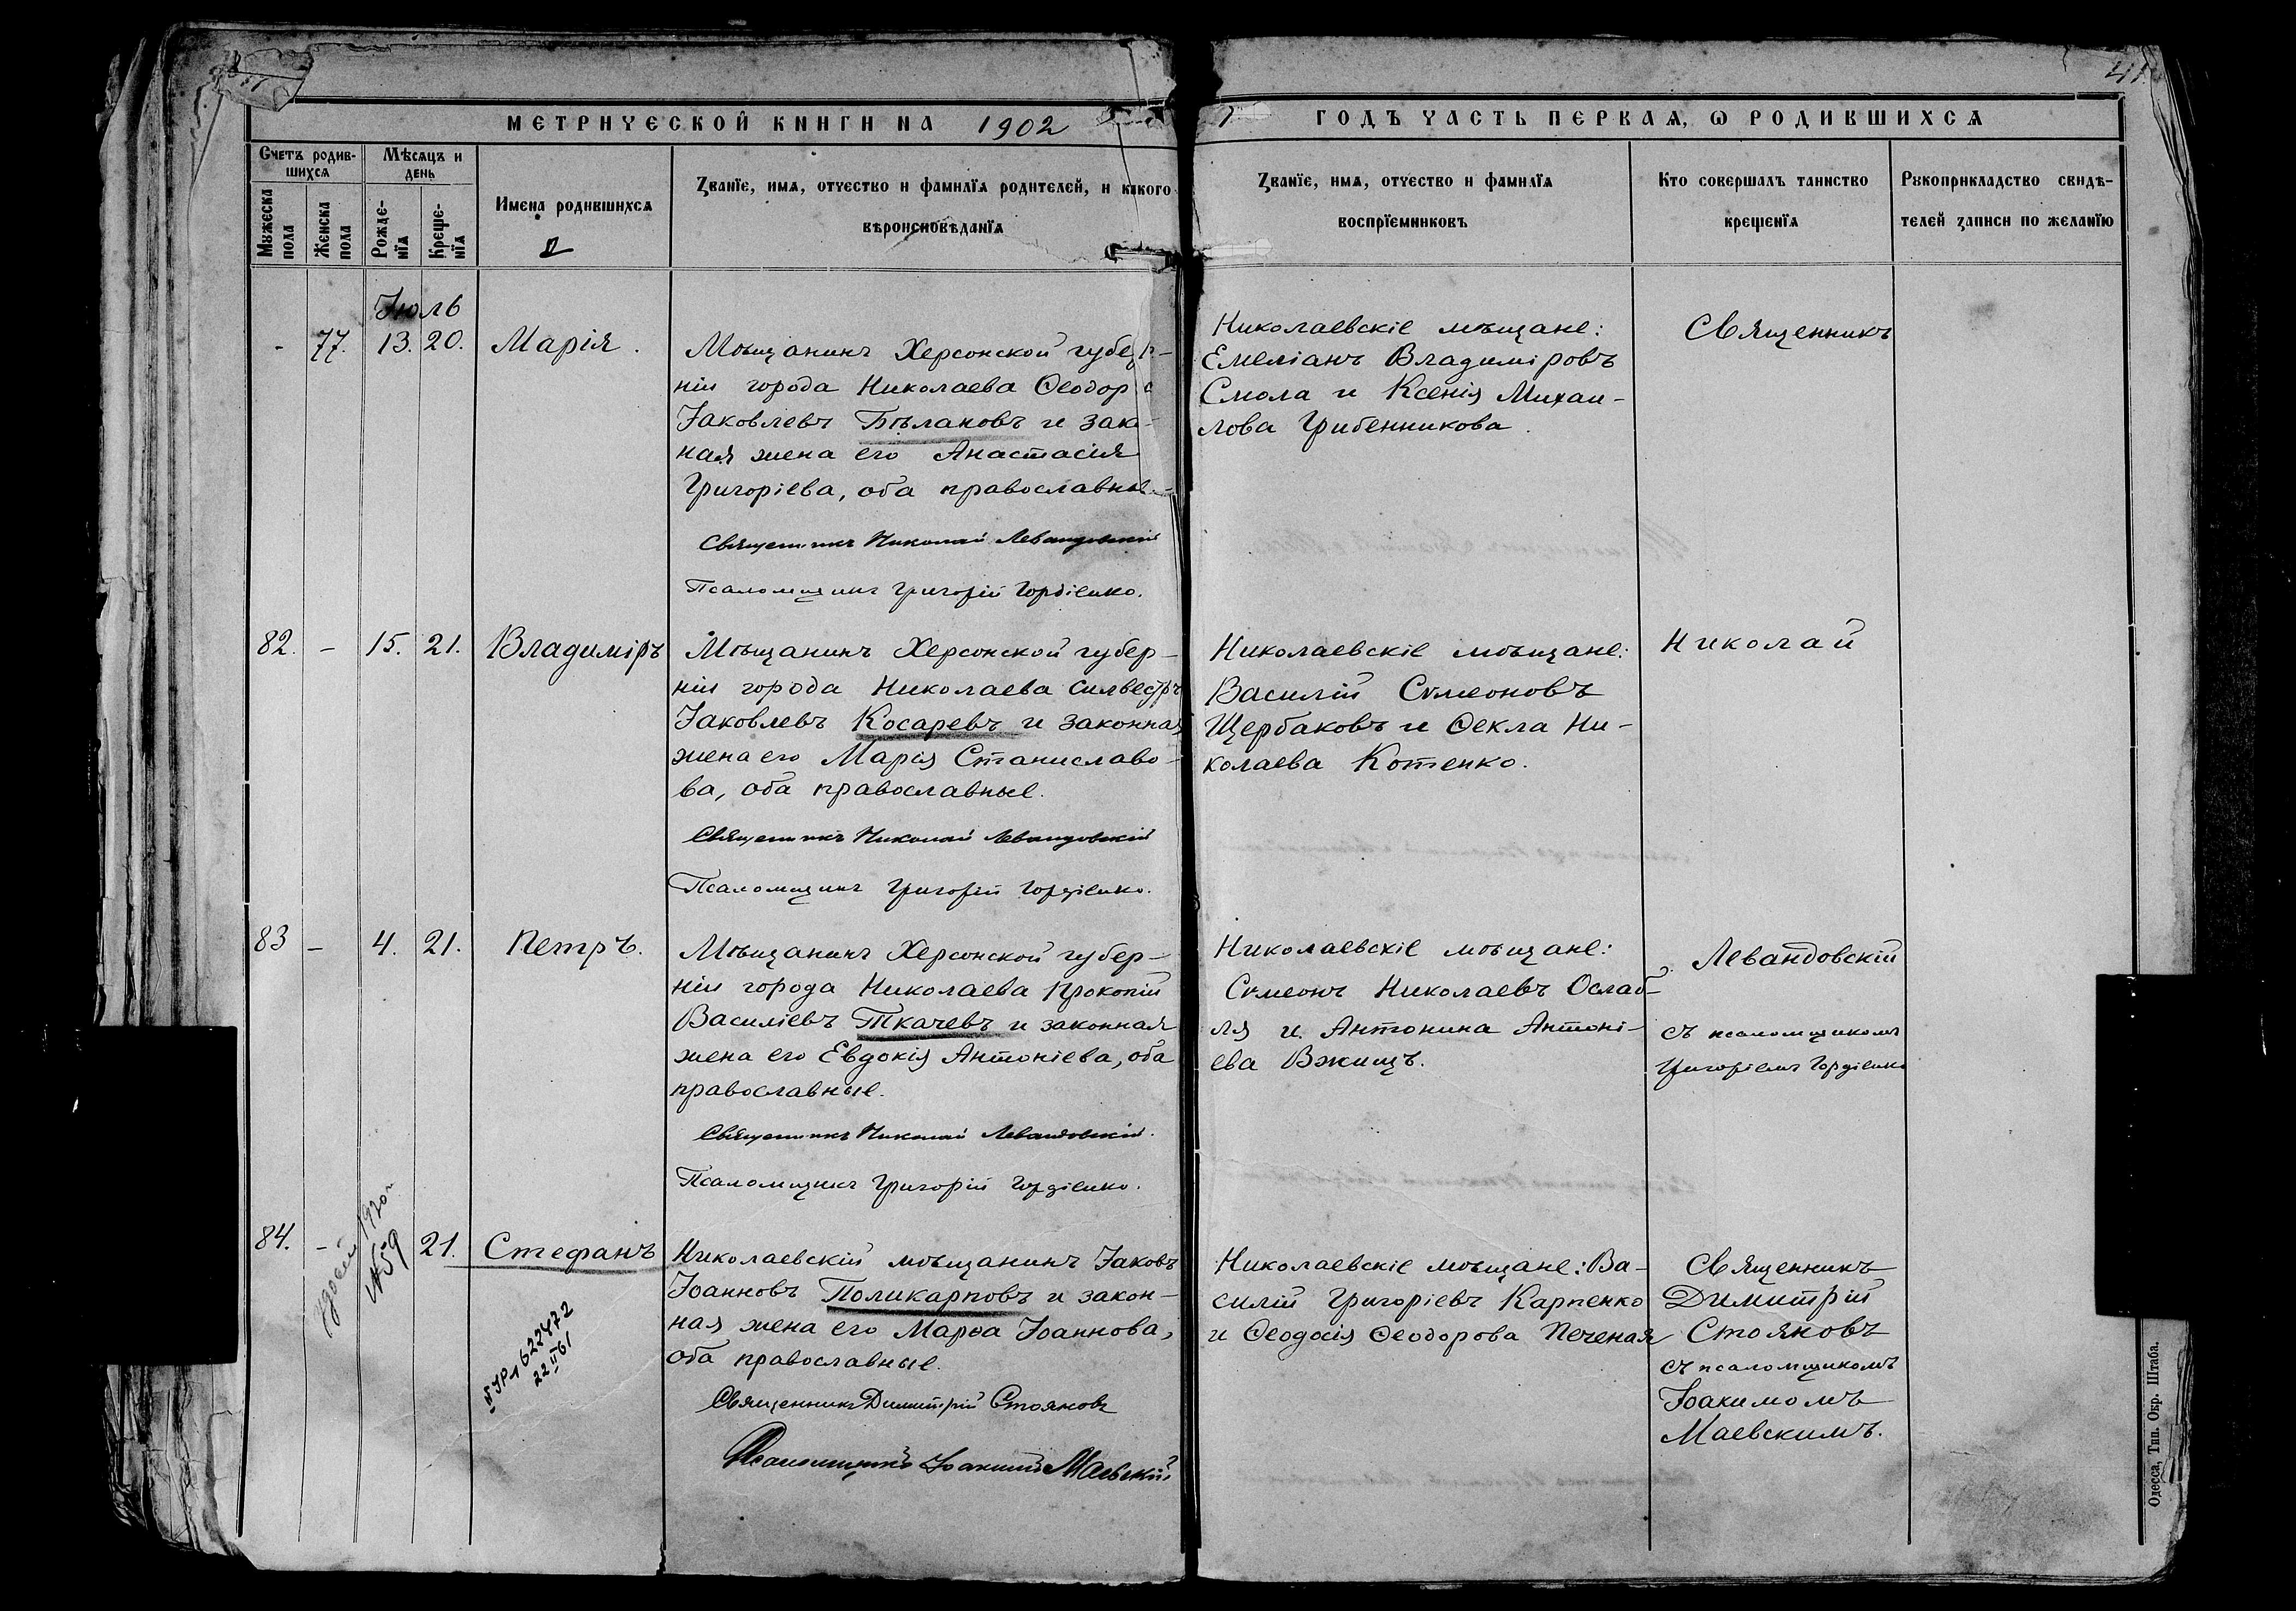 41
МЕТРИЧЕСКОЙ КНИГИ НА 1902 ГОДЪ ЧАСТЬ ПЕРВАЯ, Ѡ РОДИВШИХСЯ
Счетъ родив-
шихся
Мужеска
пола
Женска
пола
Мѣсяцъ и
день
Рожде-
нїя
Креще-
нїя
Имена родившихся
Званїе, имя, отчество и фамилїя родителей, и какого
вѣроисповѣданїя
Званїе, имя, отчество и фамилїя
воспрїемниковъ
Кто совершалъ таинство
крещенїя
Рукоприкладство свидѣ-
телей записи по желанїю
Іюль
- 77. 13. 20. Марія.
Мѣщанинъ Херсонской губер-
ніи города Николаева Ѳеодор
Іаковлевъ Бѣлановъ и закон-
ная жена его Анастасія
Григоріева, оба православные
Священникъ Николай Левандовскій
Псаломщикъ Григорій Гордіенко.
Николаевскіе мѣщане:
Емеліанъ Владиміровъ
Смола и Ксенія Михаи-
лова Грибенникова.
Священникъ
82. - 15. 21. Владиміръ
Мѣщанинъ Херсонской губер-
ніи города Николаева Силвестръ
Іаковлевъ Косаревъ и законная
жена его Марія Станиславо-
ва, оба православные.
Священникъ Николай Левандовскій
Псаломщикъ Григорій Гордіенко.
Николаевскіе мѣщане:
Василій Сѵмеоновъ
Щербаковъ и Ѳекла Ни-
колаева Котенко.
Николай
83 - 4. 21. Петръ.
Мѣщанинъ Херсонской губер-
ніи города Николаева Прокопій
Василіевъ Ткачевъ и законная
жена его Евдокія Антоніева, оба
православные.
Священникъ Николай Левандовскій.
Псаломщикъ Григорій Гордіенко.
Николаевскіе мѣщане:
Сѵмеонъ Николаевъ Ослаб-
ля и Антонина Антоні-
ева Вжищъ.
Левандовскій
съ псаломщикомъ
Григоріемъ Гордіенко
84. - 21. Стефанъ
1920 г
№59
622472
22 II 61
Николаевскій мѣщанинъ Іаковъ
Іоанновъ Поликарповъ и закон-
ная жена его Марѳа Іоаннова,
оба православные.
Священникъ Димитрій Стояновъ
Псаломщикъ Іоакимъ Маевскій
Николаевскіе мѣщане: Ва-
силій Григоріевъ Карпенко
и Ѳеодосія Ѳеодорова Печеная
Священникъ
Димитрій
Стояновъ
съ псаломщикомъ
Іоакимомъ
Маевскимъ.
Одесса, Тип. Окр. Штаба.